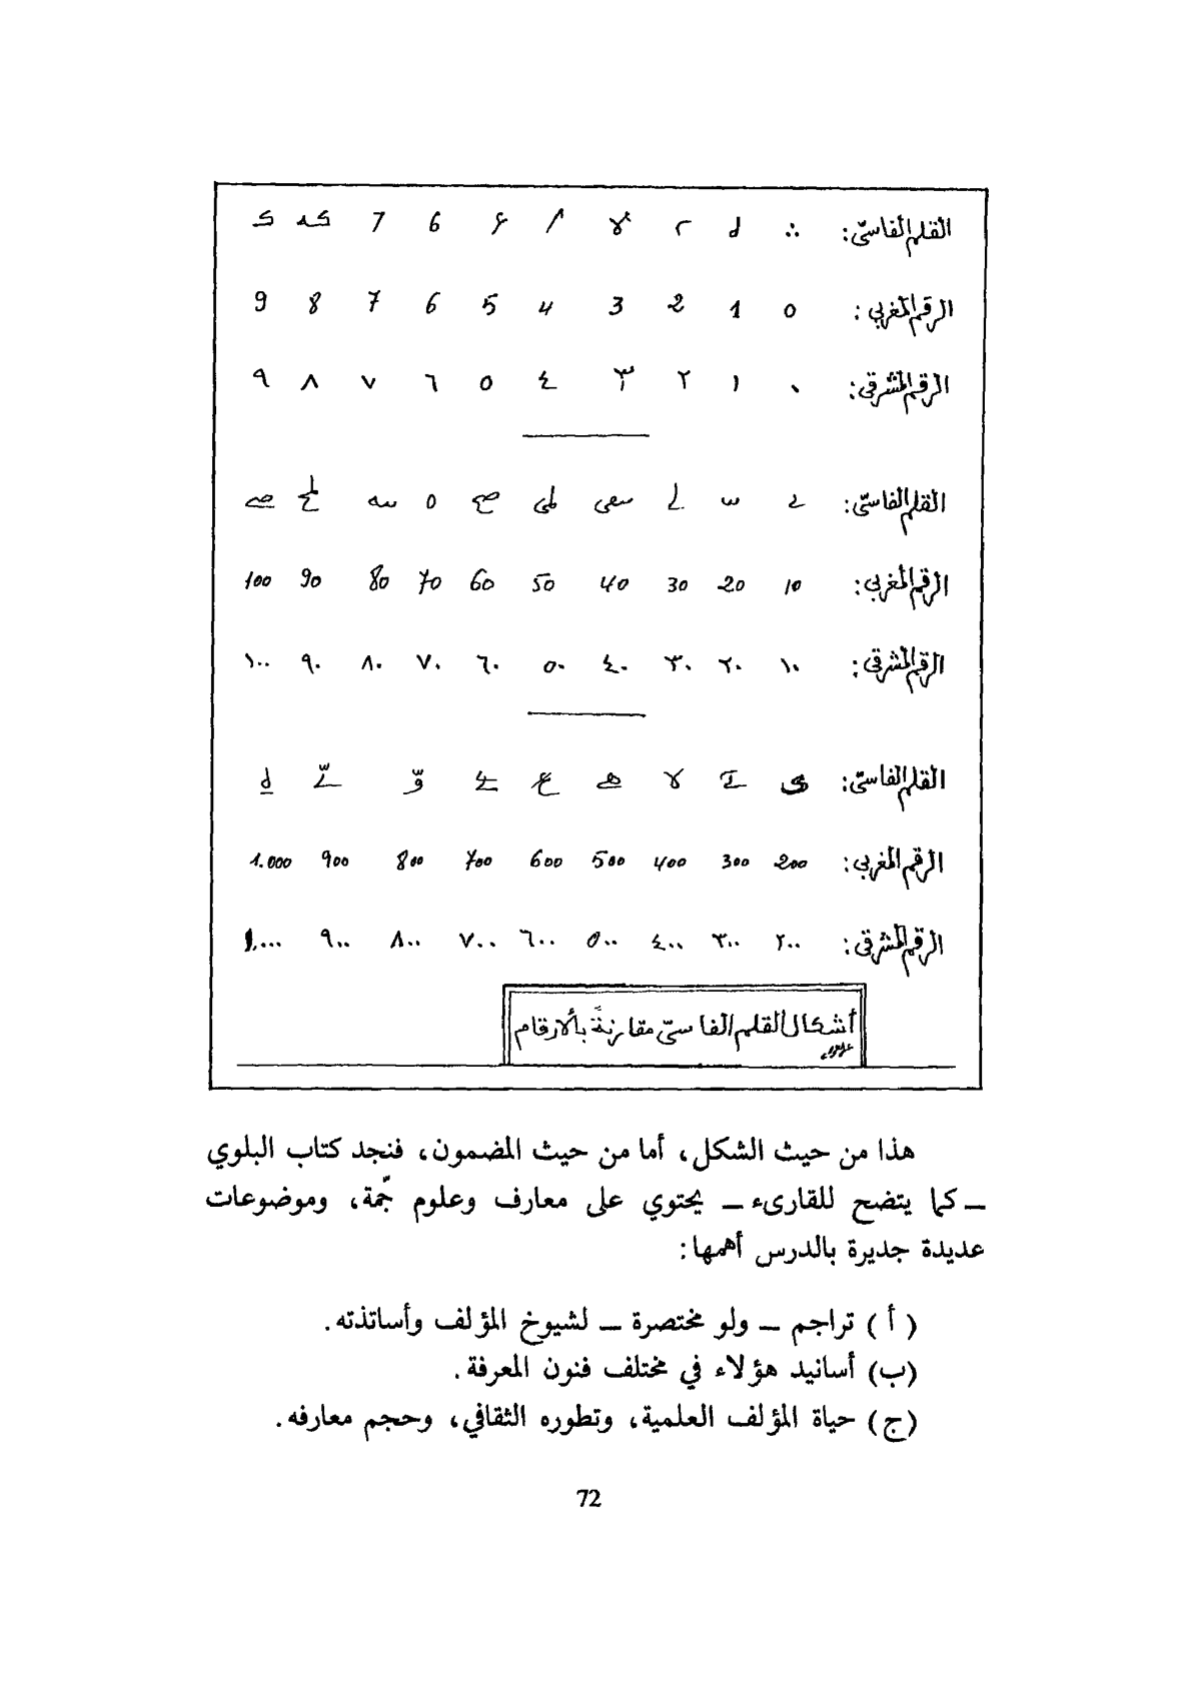 القلم الفاسيّ:
الرقم المغربي: 0 1 2 3 4 5 6 7 8 9
الرقم المشرقي: ٠ ١ ٢ ٣ ٤ ٥ ٦ ٧ ٨ ٩
القلم الفاسيّ:
الرقم المغربي: 10 20 30 40 50 60 70 80 90 100
الرقم المشرقي: ١٠ ٢٠ ٣٠ ٤٠ ٥٠ ٦٠ ٧٠ ٨٠ ٩٠ ١٠٠
القلم الفاسيّ:
الرقم المغربي: 200 300 400 500 600 700 800 900 1.000
الرقم المشرقي: ٢٠٠ ٣٠٠ ٤٠٠ ٥٠٠ ٦٠٠ ٧٠٠ ٨٠٠ ٩٠٠ ١.٠٠٠
أشكال القلم الفاسيّ مقارنةً بالأرقام
هذا من حيث الشكل، أما من حيث المضمون، فنجد كتاب البلوي
ـ كما يتضح للقارىء ـ يحتوي على معارف وعلوم جّمة، وموضوعات
عديدة جديرة بالدرس أهمها:
(أ) تراجم ـ ولو مختصرة ـ لشيوخ المؤلف وأساتذته.
(ب) أسانيد هؤلاء في مختلف فنون المعرفة.
(ج) حياة المؤلف العلمية، وتطوره الثقافي، وحجم معارفه.
72